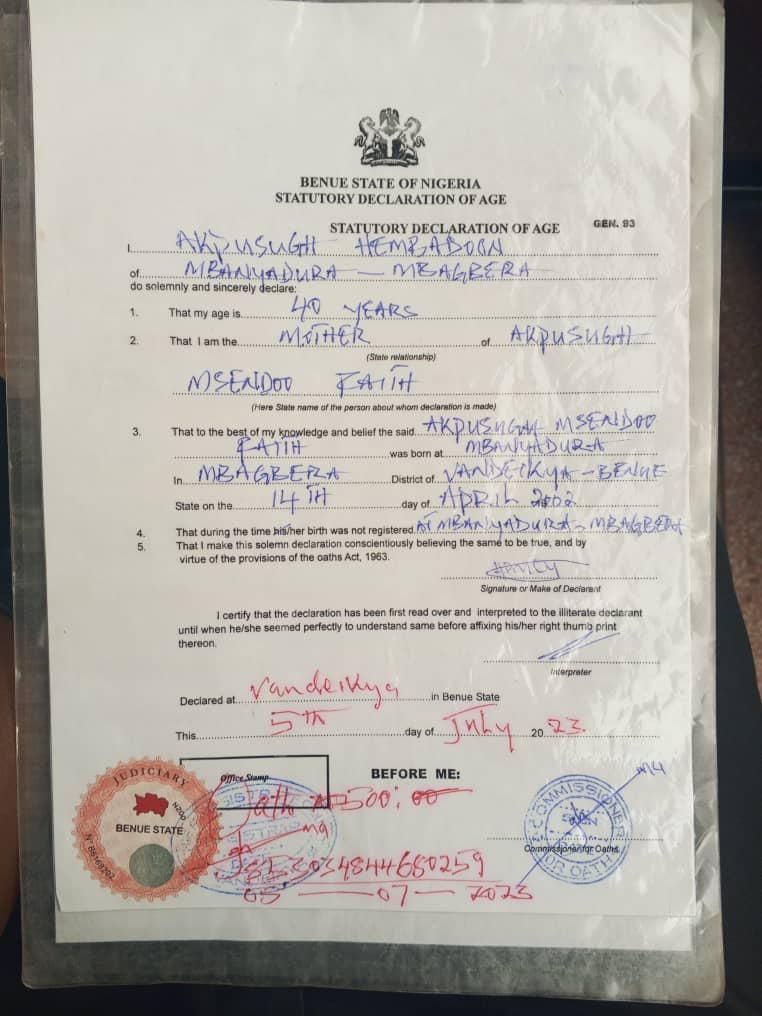 BENUE STATE OF NIGERIA
STATUTORY DECLARATION OF AGE
STATUTORY DECLARATION OF AGE GEN. 93
I AKPUSUGH HEMBADOON
of MBANYADURA - MBAGBERA
do solemnly and sincerely declare:
1. That my age is 40 YEARS
2. That I am the MOTHER of AKPUSUGH
(State relationship)
MSENDOO FAITH
(Here State name of the person about whom declaration is made)
3. That to the best of my knowledge and belief the said AKPUSUGH MSENDOO
FAITH was born at MBANYADURA
In MBAGBERA District of VANDEIKYA - BENUE
State on the 14TH day of APRIL 2002
4. That during the time his/her birth was not registered AT MBANYADURA - MBAGBERA
5. That I make this solemn declaration conscientiously believing the same to be true, and by
virtue of the provisions of the oaths Act, 1963.
Signature or Make of Declarant
I certify that the declaration has been first read over and interpreted to the illiterate declarant
until when he/she seemed perfectly to understand same before affixing his/her right thumb print
thereon.
Interpreter
Declared at Vandeikya in Benue State
This 5th day of July 20 23
BEFORE ME:
Office Stamp
500:00
3034844680259
05 - 07 - 2023
JUDICIARY
N200
BENUE STATE
COMMISSIONER
FOR OATHS
Commissioner for Oaths